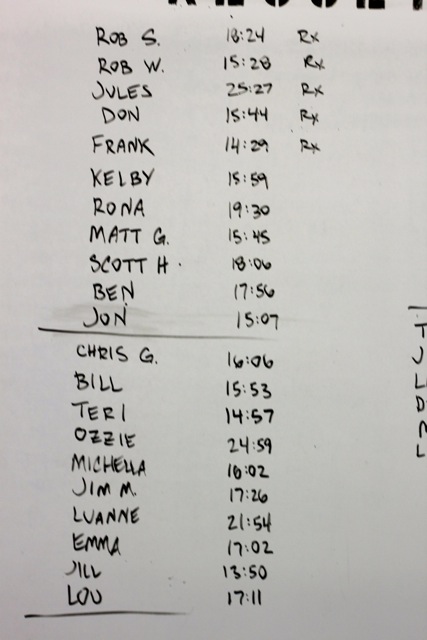 ROB S. 18:24 Rx
ROB W. 15:28 Rx
JULES 25:27 Rx
DON 15:44 Rx
FRANK 14:29 Rx
KELBY 15:59
RONA 19:30
MATT G. 15:45
SCOTT H. 18:06
BEN 17:56
JON 15:07
CHRIS G. 16:06
BILL 15:53
TERI 14:57
OZZIE 24:59
MICHELLA 16:02
JIM M. 17:26
LUANNE 21:54
EMMA 17:02
JILL 13:50
LOU 17:11